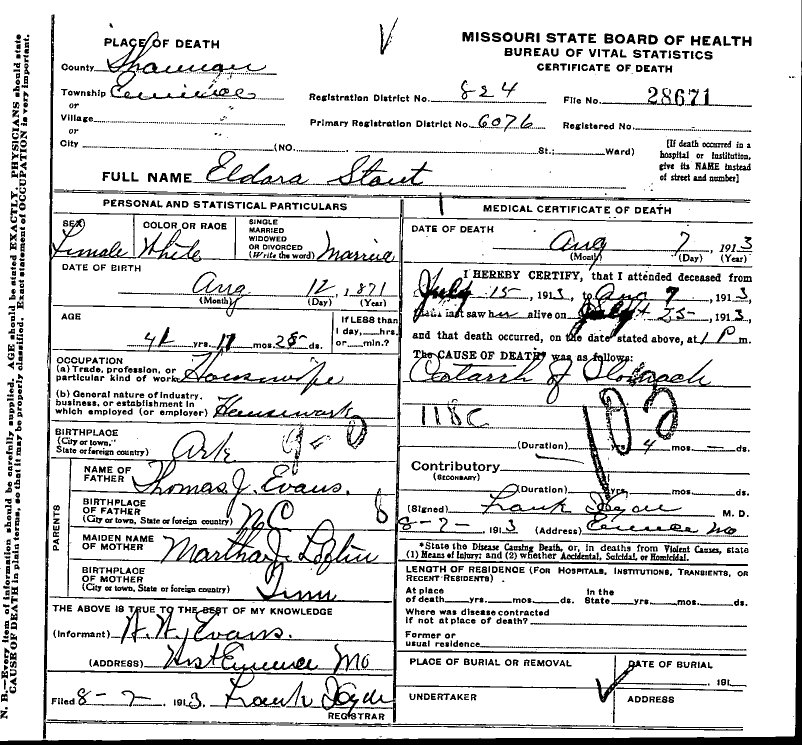 N. B.—Every item of information should be carefully supplied. AGE should be stated EXACTLY. PHYSICIANS should state
CAUSE OF DEATH in plain terms, so that it may be properly classified. Exact statement of OCCUPATION is very important.
PLACE OF DEATH
County Shannon
Township Eminence
or
Village
or
City (NO. St.; Ward)
MISSOURI STATE BOARD OF HEALTH
BUREAU OF VITAL STATISTICS
CERTIFICATE OF DEATH
Registration District No. 824 File No. 28671
Primary Registration District No. 6076 Registered No.
[If death occurred in a
hospital or institution,
give its NAME instead
of street and number]
FULL NAME Eldora Stout
PERSONAL AND STATISTICAL PARTICULARS
SEX Female
COLOR OR RACE White
SINGLE
MARRIED
WIDOWED
OR DIVORCED
(Write the word) Married
DATE OF BIRTH
Aug 12, 1871
(Month) (Day) (Year)
AGE
41 yrs. 11 mos. 25 ds.
If LESS than
1 day, hrs.
or min.?
OCCUPATION
(a) Trade, profession, or
particular kind of work Housewife
(b) General nature of industry,
business, or establishment in
which employed (or employer) Housework
BIRTHPLACE
(City or town,
State or foreign country) Ark
PARENTS
NAME OF
FATHER Thomas J. Evans.
BIRTHPLACE
OF FATHER
(City or town, State or foreign country) NC
MAIDEN NAME
OF MOTHER Martha J. Loftin
BIRTHPLACE
OF MOTHER
(City or town, State or foreign country) Tenn
THE ABOVE IS TRUE TO THE BEST OF MY KNOWLEDGE
(Informant) Evans.
(ADDRESS) West Eminence Mo
Filed 8-7-1913 Frank
REGISTRAR
MEDICAL CERTIFICATE OF DEATH
DATE OF DEATH
Aug 7, 1913
(Month) (Day) (Year)
I HEREBY CERTIFY, that I attended deceased from
July 15-, 1913, to Aug 7, 1913
that I last saw her alive on July 25-, 1913,
and that death occurred, on the date stated above, at 1 P m.
The CAUSE OF DEATH* was as follows:
Catarrh of Stomach
118C
103
(Duration) yrs. 4 mos. — ds.
Contributory
(SECONDARY)
(Duration) yrs. mos. ds.
(Signed) Frank M. D.
8-7-1913 (Address) Eminence Mo
*State the Disease Causing Death, or, in deaths from Violent Causes, state
(1) Means of Injury; and (2) whether Accidental, Suicidal, or Homicidal.
LENGTH OF RESIDENCE (FOR HOSPITALS, INSTITUTIONS, TRANSIENTS, OR
RECENT RESIDENTS)
At place
of death yrs. mos. ds.
In the
State yrs. mos. ds.
Where was disease contracted
if not at place of death?
Former or
usual residence
PLACE OF BURIAL OR REMOVAL
DATE OF BURIAL
191
UNDERTAKER
ADDRESS